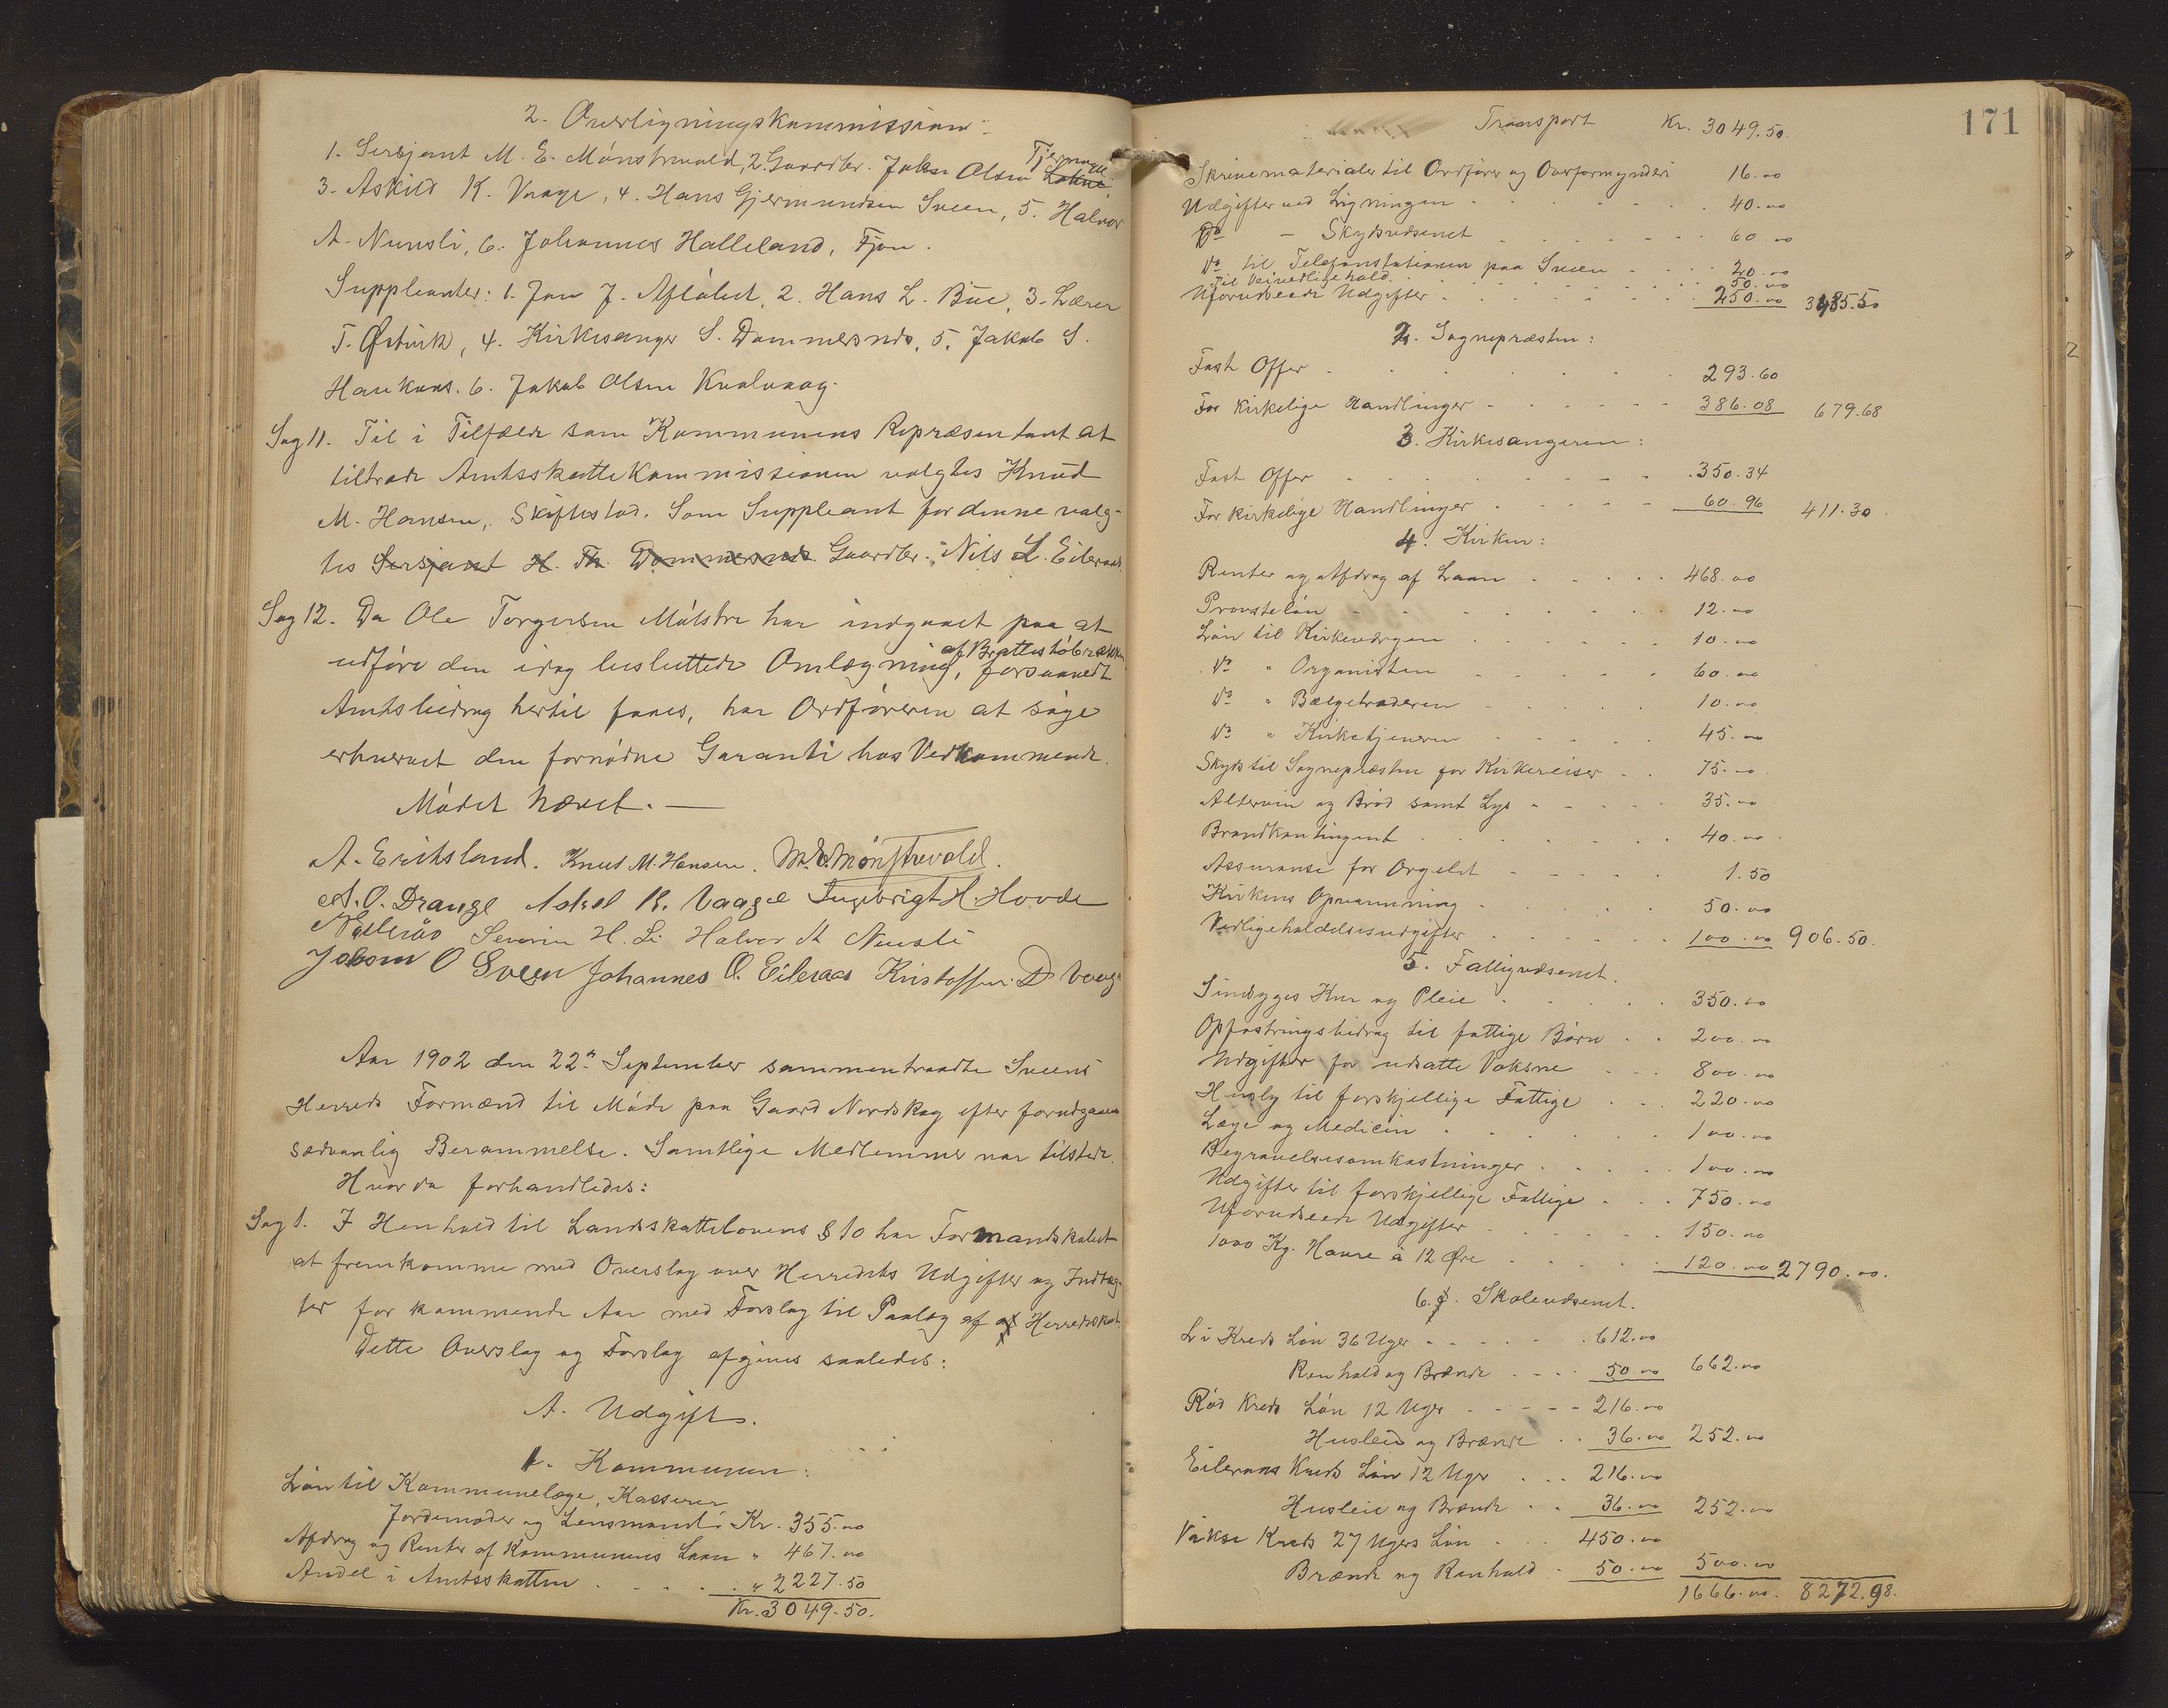 2. Overligningskommission:
1. Sersjant M. E. Mónstrevold, 2. Gaardbr. Jakob Olsen Tjernagel
3. Askild K. Vaage, 4. Hans Gjermundsen Sveen, 5. Halvor
A. Nunsli, 6. Johannes Halleland, Fjon.
Suppleanter: 1. Jan J. Aflólet, 2. Hans L. Bue, 3. Lærer
T. Østvik, 4. Kirkesanger S. Dommersnes, 5. Jakob S.
Haukaas. 6. Jakob Olsen Kvalvaag.
Sag 11. Til i Tilfælde som Kommunens Repræsentant at
tiltræde Amtsskattekommissionen valgtes Knud
M. Hansen, Skiftestad. Som Suppleant for denne valg-
tes Sersjant H. Th. Dommersnes Gaardbr. Nils L. Eileraas
Sag 12. Da Ole Torgersen Mólstre har indgaaet paa at
udfóre den idag besluttede Omlægning af Brattestóbrækken, forsaavidt
Amtsbidrag hertil faaes, har Ordfóreren at sóge
erhvervet den fornódne Garanti hos Vedkommende.
Módet hævet. —
A. Eriksland. Knud M. Hansen. M. E. Mónstrevold.
A. O. Drange Askel K. Vaage Ingebrigt H. Hovde
N Eileraas Severin H. Li Halvor A Nunsli
Johan O Sveen Johannes O. Eileraas Kristoffer D Vaage
Aar 1902 den 22de September sammentraadte Sveens
Herreds Formænd til Móde paa Gaard Nordskog efter forudgaaende
sædvanlig Berammelse. Samtlige Medlemmer var tilstede.
Hvorda forhandledes:
Sag 1. I Henhold til Landskattelovens § 10 har Formandskabet
at fremkomme med Overslag over Herredets Udgifter og Indtæg-
ter for kommende Aar med Forslag til Paalæg af Herredsskat.
Dette Overslag og Forslag afgives saaledes:
A. Udgift.
1. Kommunen:
Lón til Kommunelæge, Kasserer
Jordemoder og Lensmand Kr. 355.00
Afdrag og Renter af Kommunens Laan " 467.00
Andel i Amtsskatten . . . . " 2227.50
Kr. 3049.50.
171
Transport Kr. 3049.50.
Skrivematerialer til Ordfórer og Overformynderi 16.00
Udgifter ved Ligningen . . . 40.00
Do - Skydsvæsenet . . . 60.00
Do til Telefonstationen paa Sveen . . . 20.00
Til Veivedligehold. . . . 50.00
Uforudseede Udgifter . . . 250.00 3485.50
2. Sognepræsten:
Fast Offer . . . 293.60
For Kirkelige Handlinger . . . 386.08 679.68
3. Kirkesangeren:
Fast Offer . . . 350.34
For kirkelige Handlinger . . . 60.96 411.30
4. Kirken:
Renter og Afdrag af Laan . . . 468.00
Provstelón . . . 12.00
Lón til Kirkeværgen . . . 10.00
Do " Organisten . . . 60.00
Do " Bælgetræderen . . . 10.00
Do " Kirketjeneren . . . 45.00
Skyds til Sognepræsten for Kirkereiser . . 75.00
Altervin og Bród samt Lys . . . 35.00
Brandkontingent . . . 40.00
Assuranse for Orgelet . . . 1.50
Kirkens Opvarmning . . . 50.00
Vedligeholdelsesudgifter . . . 100.00 906.50.
5. Fattigvæsenet.
Sindsyges Kur og Pleie . . . 350.00
Opfostringsbidrag til fattige Bórn . . 200.00
Udgifter for udsatte Voksne . . . 800.00
Husly til forskjellige Fattige . . . 220.00
Læge og Medicin . . . 100.00
Begravelsesomkostninger . . . 100.00
Udgifter til forskjellige Fattige . . . 750.00
Uforudseede Udgifter . . . 150.00
1000 Kg. Havre à 12 Øre . . . 120.00 2790.00.
6. Skolevæsenet.
Li Kreds Lón 36 Uger . . . 612.00
Renhold og Brænde . . . 50.00 662.00
Ród Kreds Lón 12 Uger . . . 216.00
Husleie og Brænde . . 36.00 252.00
Eileraas Kreds Lón 12 Uger . . . 216.00
Husleie og Brænde . . 36.00 252.00
Vikse Kreds 27 Ugers Lón . . . 450.00
Brænde og Renhold . 50.00 500.00
1666.00. 8272.98.